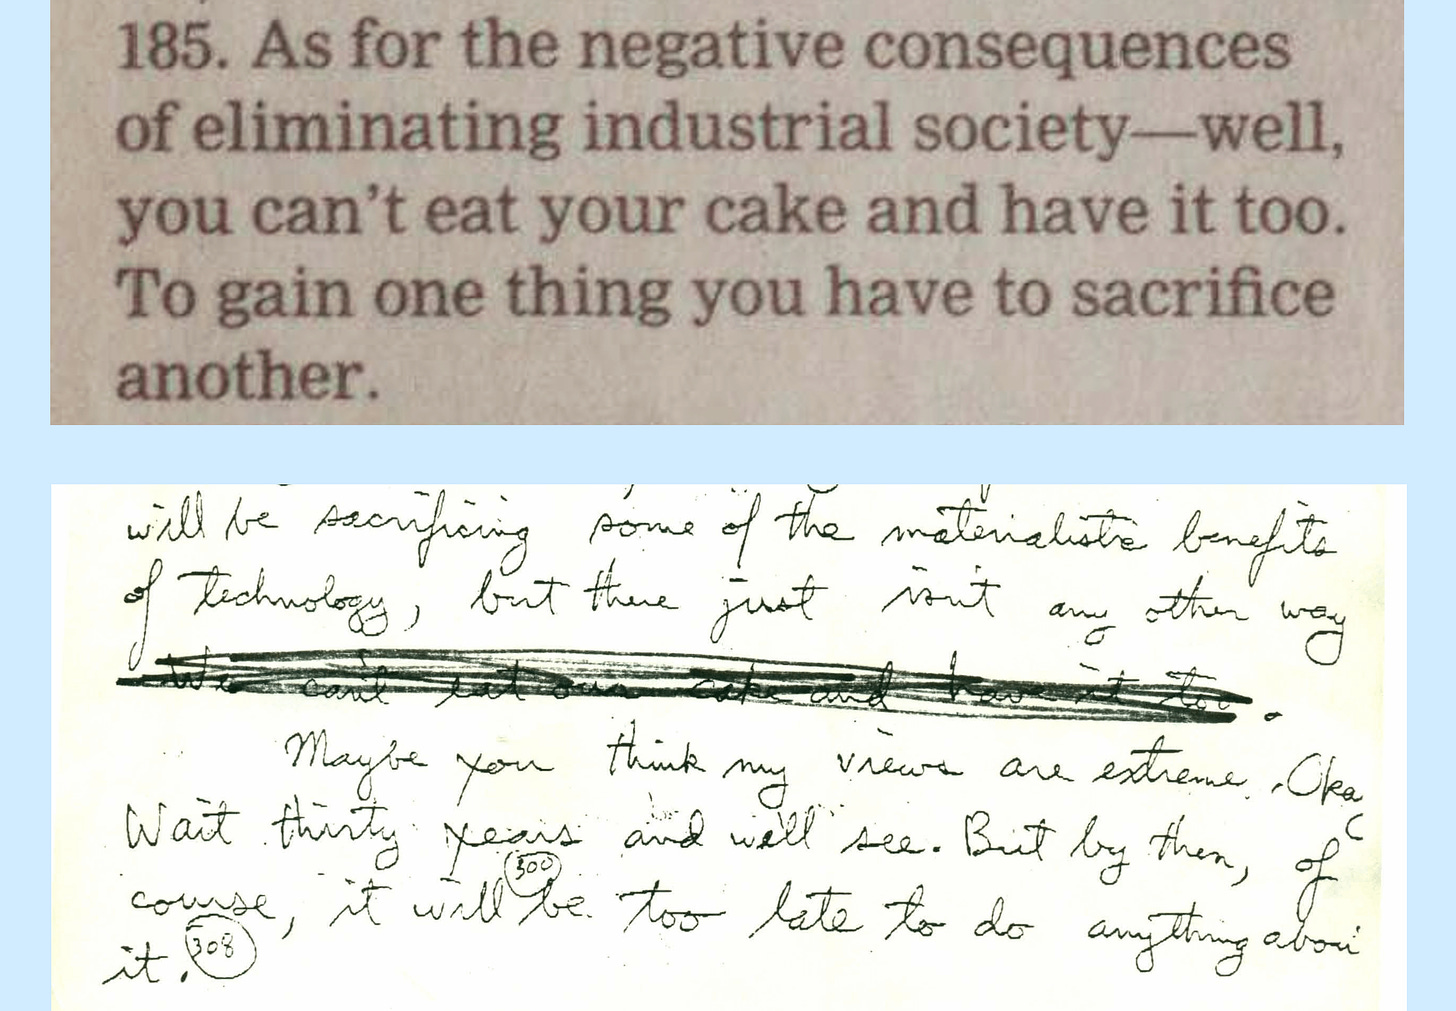 185. As for the negative consequences
of eliminating industrial society—well,
you can’t eat your cake and have it too.
To gain one thing you have to sacrifice
another.
will be sacrificing some of the materialistic benefits
of technology, but there just isn't any other way
We can't eat our cake and have it too.
Maybe you think my views are extreme. Oka
Wait thirty years and we'll see. But by then, of
300
course, it will be too late to do anything abou
it. 308